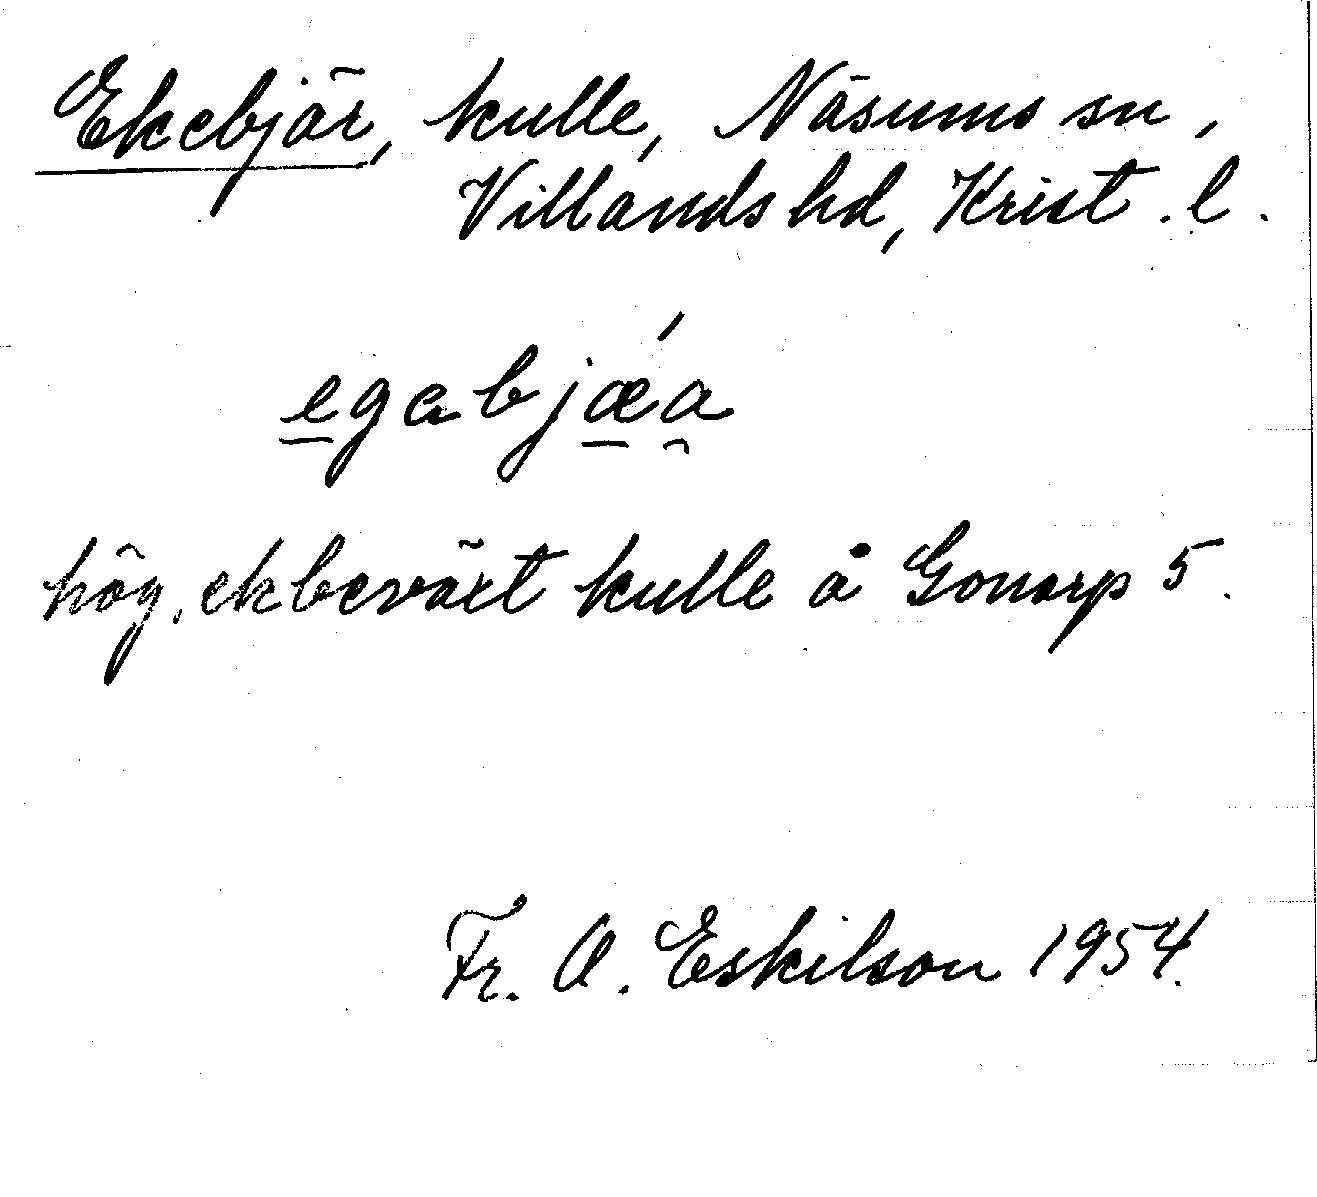 Ekebjär, kulle, Näsums sn,
Villands hd, Krist. l.
e̲gabjǽ̲a̯
hög, ekbeväxt kulle å Gonarp 5.
Fr. O. Eskilson 1954.